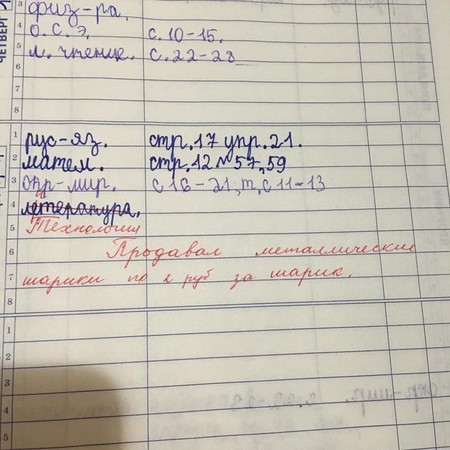 ЧЕТВЕРГ
3 физ-ра.
4 о.с.э. с.10-15.
5 л. чтение. с.22-28
6
7
8
1 рус-яз. стр.17 упр.21.
2 матем. стр.12 №57,59
3 окр-мир. с 16-21, т, с 11-13
4 литература.
5 Технология
6 Продавал металлические
7 шарики по 2 руб за шарик.
8
1
2
3
3
4
5